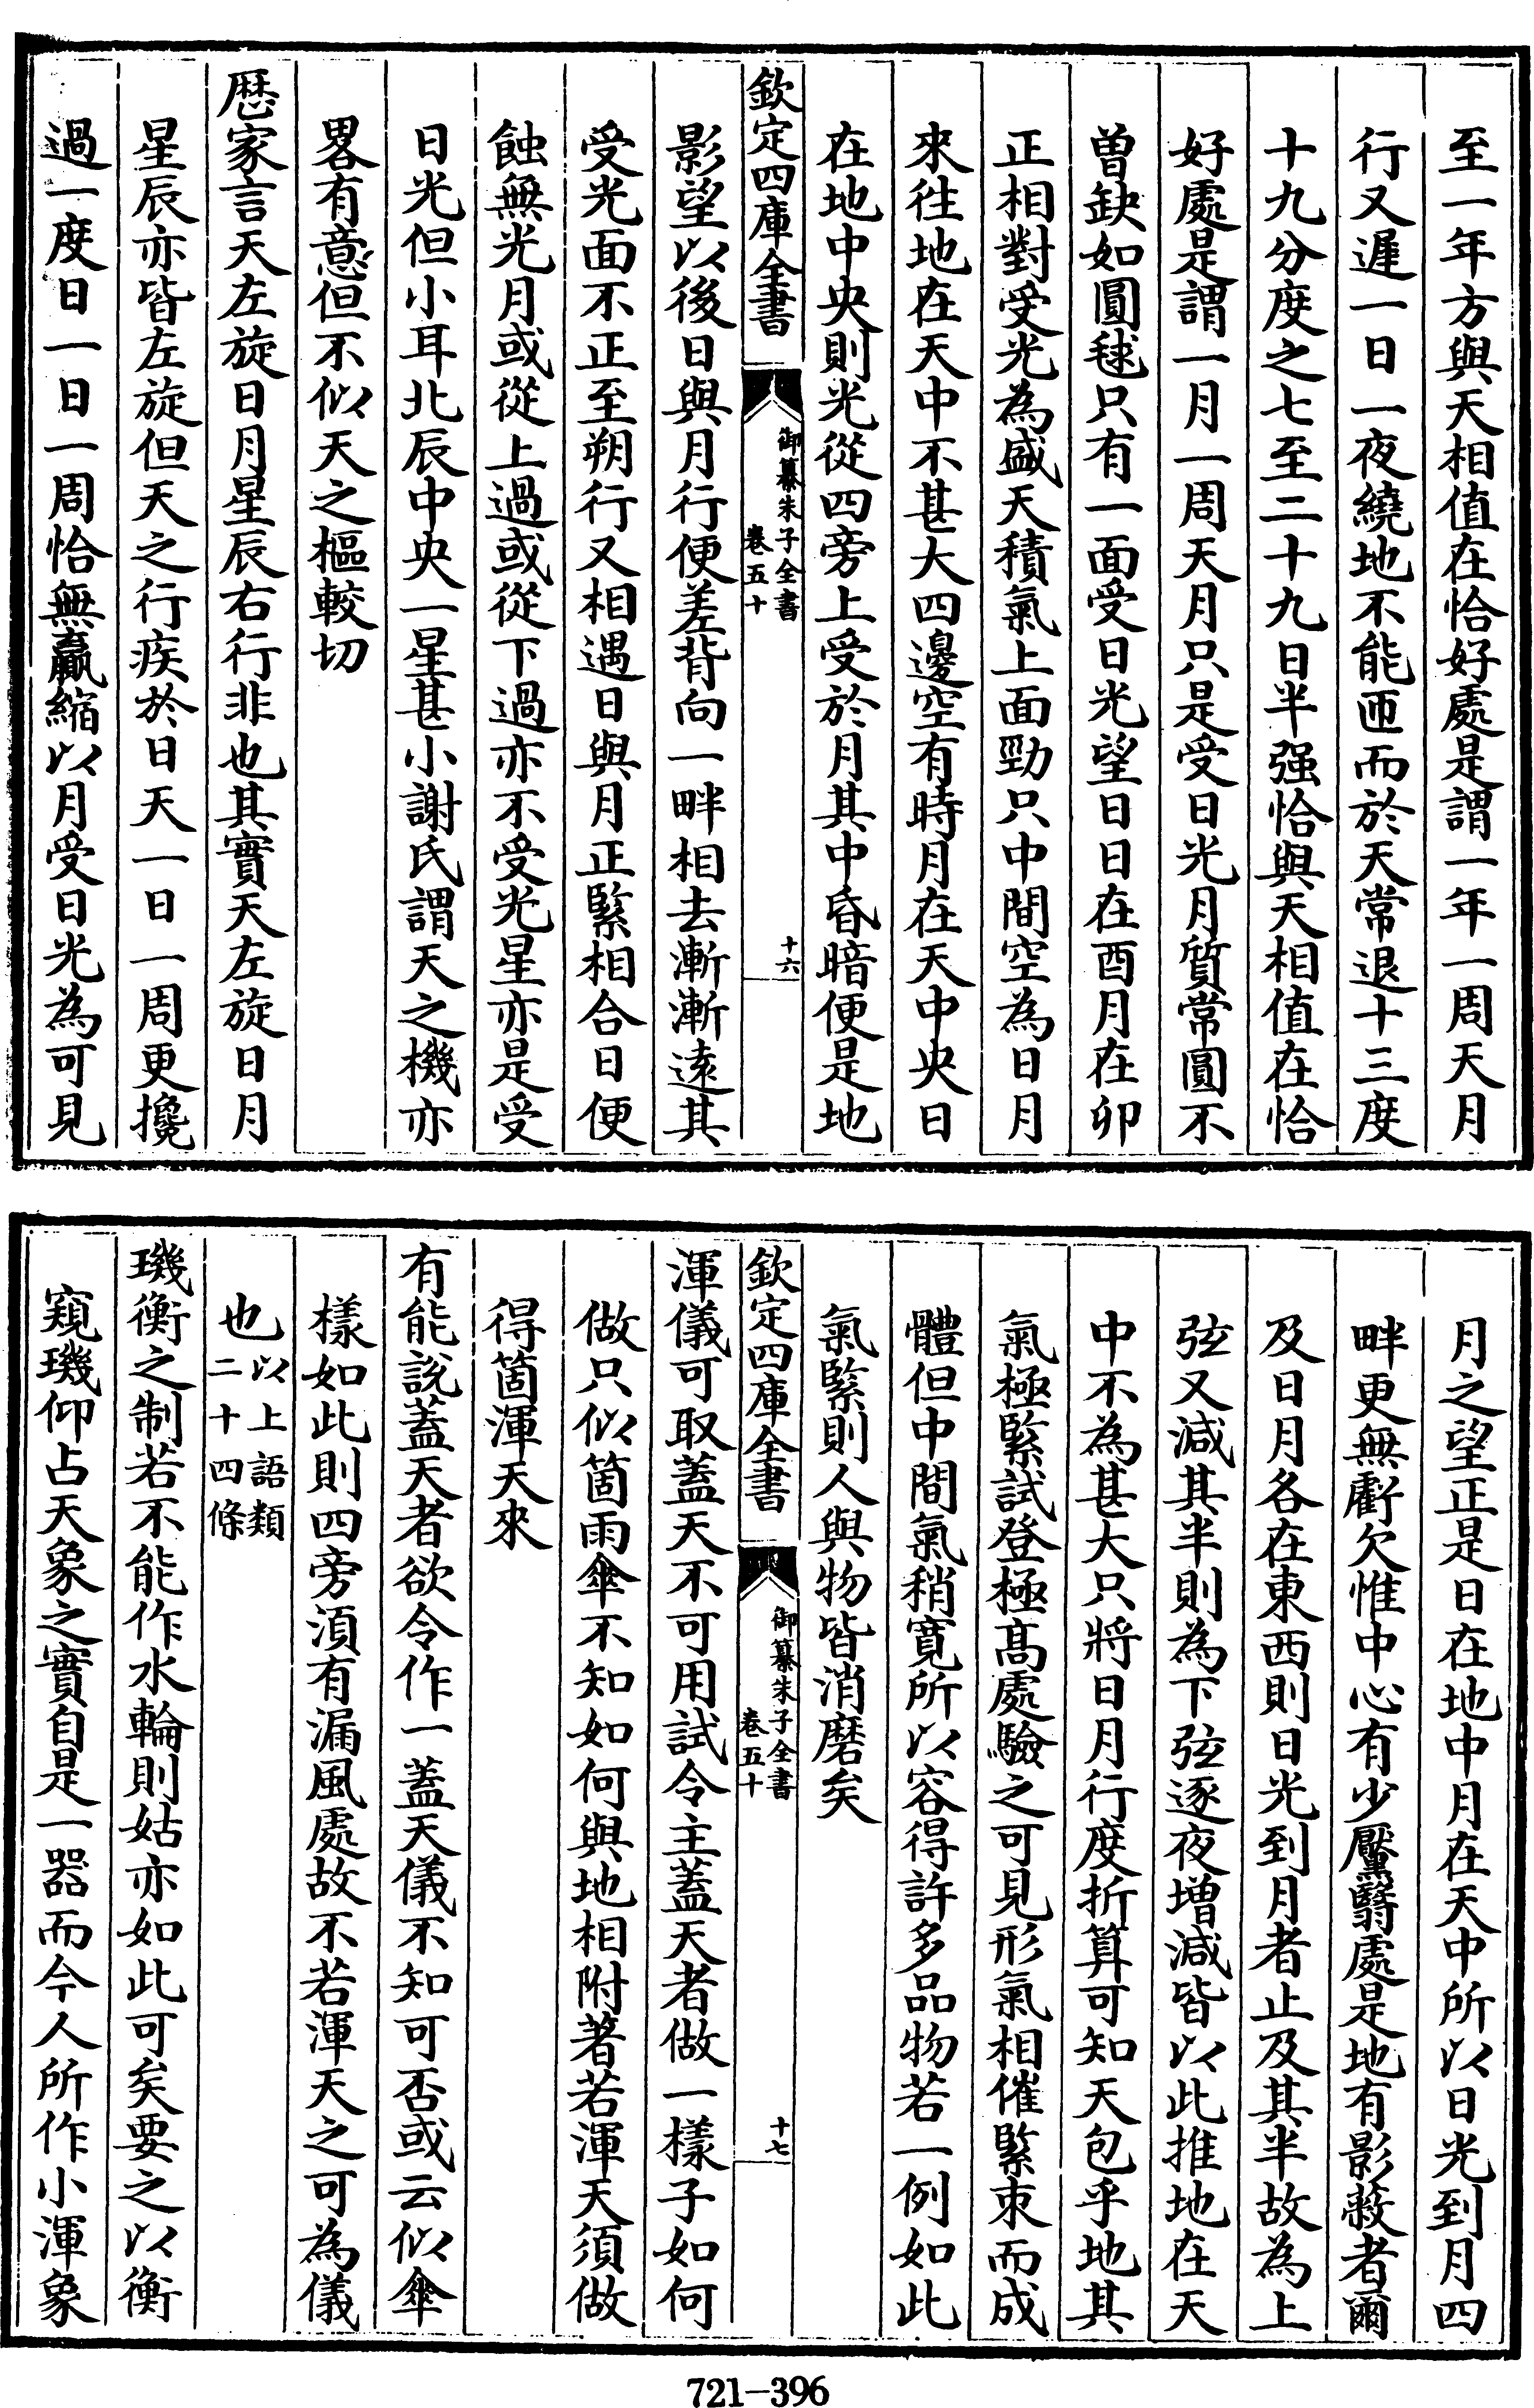 至一年方與天相值在恰好處是謂一年一周天月
行又遲一日一夜繞地不能匝而於天常退十三度
十九分度之七至二十九日半强恰與天相值在恰
好處是謂一月一周天月只是受日光月質常圓不
曾缺如圓毬只有一面受日光望日日在酉月在卯
正相對受光為盛天積氣上面勁只中間空為日月
來徃地在天中不甚大四邊空有時月在天中央日
在地中央則光從四旁上受於月其中昏暗便是地
欽定四庫全書
御纂朱子全書
卷五十
十六
影望以後日與月行便差背向一畔相去漸漸遠其
受光面不正至朔行又相遇日與月正緊相合日便
蝕無光月或從上過或從下過亦不受光星亦是受
日光但小耳北辰中央一星甚小謝氏謂天之機亦
畧有意但不似天之樞較切
厯家言天左旋日月星辰右行非也其實天左旋日月
星辰亦皆左旋但天之行疾於日天一日一周更攙
過一度日一日一周恰無贏縮以月受日光為可見
月之望正是日在地中月在天中所以日光到月四
畔更無虧欠惟中心有少黶翳處是地有影蔽者爾
及日月各在東西則日光到月者止及其半故為上
弦又減其半則為下弦逐夜增減皆以此推地在天
中不為甚大只將日月行度折算可知天包乎地其
氣極緊試登極髙處驗之可見形氣相催緊束而成
體但中間氣稍寛所以容得許多品物若一例如此
氣緊則人與物皆消磨矣
欽定四庫全書
御纂朱子全書
卷五十
十七
渾儀可取蓋天不可用試令主蓋天者做一樣子如何
做只似箇雨傘不知如何與地相附著若渾天須做
得箇渾天來
有能說蓋天者欲令作一蓋天儀不知可否或云似傘
樣如此則四旁須有漏風處故不若渾天之可為儀
也以上語類
二十四條
璣衡之制若不能作水輪則姑亦如此可矣要之以衡
窺璣仰占天象之實自是一器而今人所作小渾象
721-396